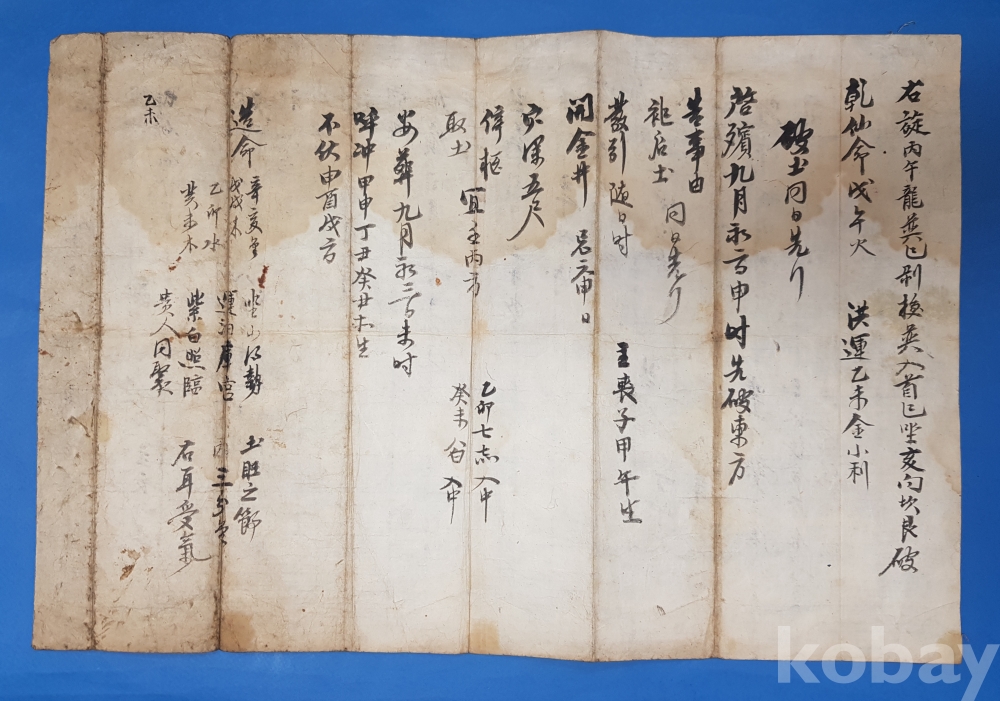 右旋丙午龍巽巳剝換巽入首巳坐亥向坎艮破
乾仙命戊午火 洪運乙未金小利
破土同日先行
啓殯九月初二日申時先破東方
告事由
祀后土 同日先行
發引隨日時
主喪子甲午生
開金井 忌庚申日
穴深五尺
停柩 宜壬丙方
取土
乙卯七赤入中
癸未八白入中
安葬九月初三日未時
呼冲甲申丁丑癸丑生
不伏申酉戌方
造命 辛亥金
戊戌木
乙卯水
癸未木
坐山得勢
運泊庫宮
紫白照臨
貴人同聚
土旺之節
三分金
右耳受氣
乙未
kobay